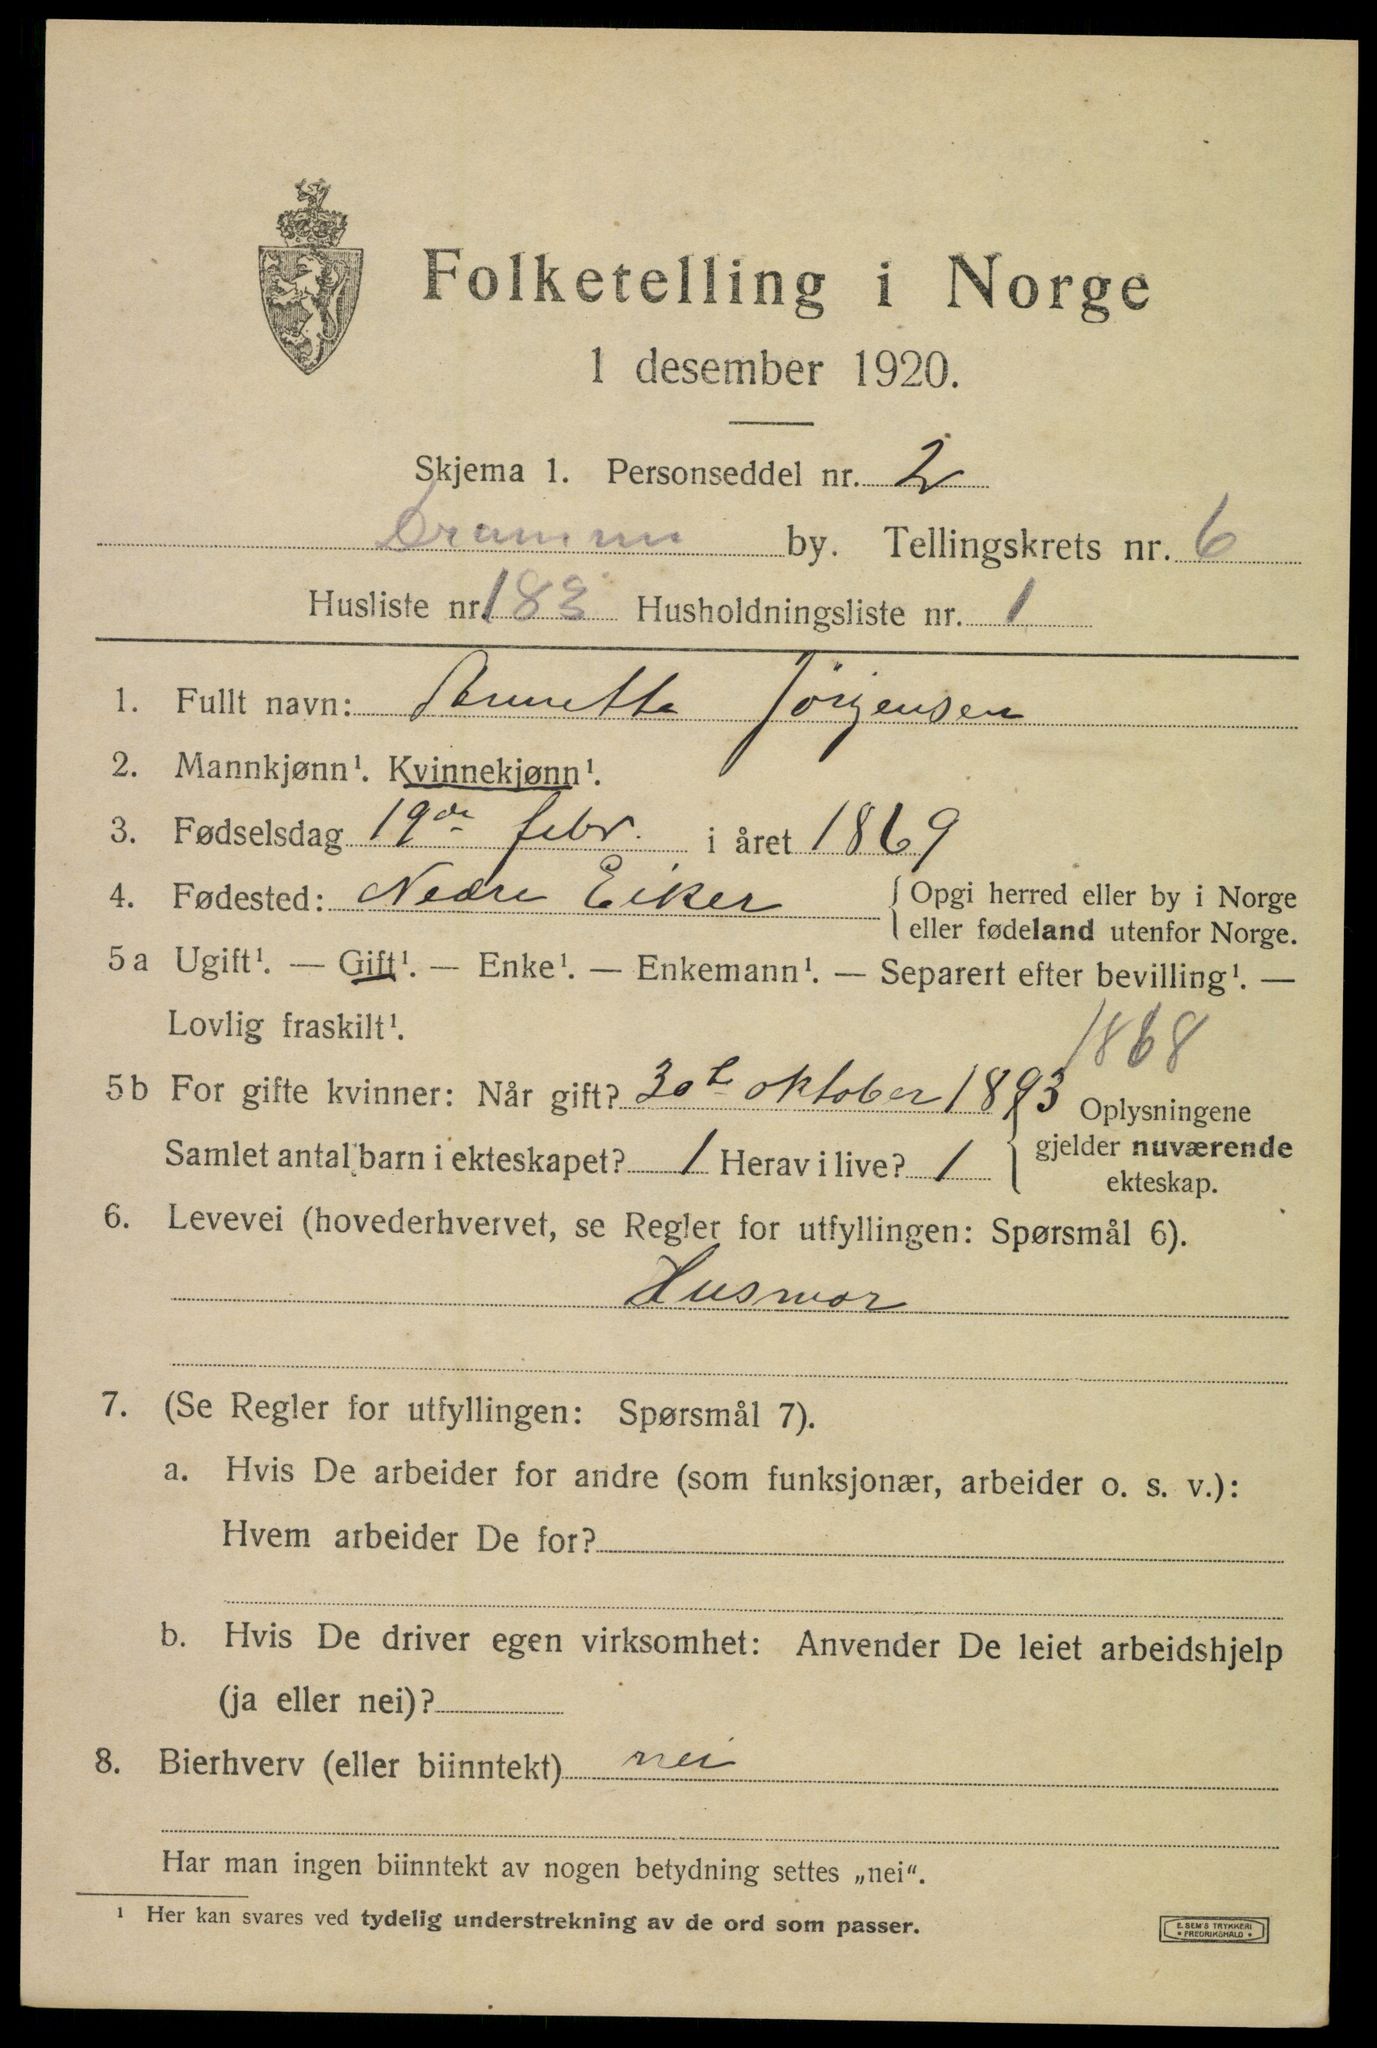 Folketelling i Norge
1 desember 1920.
Skjema 1. Personseddel nr. 2
Drammen by. Tellingskrets nr. 6
Husliste nr. 183 Husholdningsliste nr. 1
1. Fullt navn: Annette Jörgensen
2. Mannkjønn¹. Kvinnekjønn¹.
3. Fødselsdag 19de febr. i året 1869
4. Fødested: Nedre Eiker { Opgi herred eller by i Norge
eller fødeland utenfor Norge.
5 a Ugift¹. — Gift¹. — Enke¹. — Enkemann¹. — Separert efter bevilling¹. —
Lovlig fraskilt¹.
1868
5 b For gifte kvinner: Når gift? 30te oktober 1893 Oplysningene
Samlet antal barn i ekteskapet? 1 Herav i live? 1 { gjelder nuværende
ekteskap.
6. Levevei (hovederhvervet, se Regler for utfyllingen: Spørsmål 6).
Husmor
7. (Se Regler for utfyllingen: Spørsmål 7).
a. Hvis De arbeider for andre (som funksjonær, arbeider o. s. v.):
Hvem arbeider De for?
b. Hvis De driver egen virksomhet: Anvender De leiet arbeidshjelp
(ja eller nei)?
8. Bierhverv (eller biinntekt) nei
Har man ingen biinntekt av nogen betydning settes „nei“.
¹ Her kan svares ved tydelig understrekning av de ord som passer.
E. SEM'S TRYKKERI
• FREDRIKSHALD •